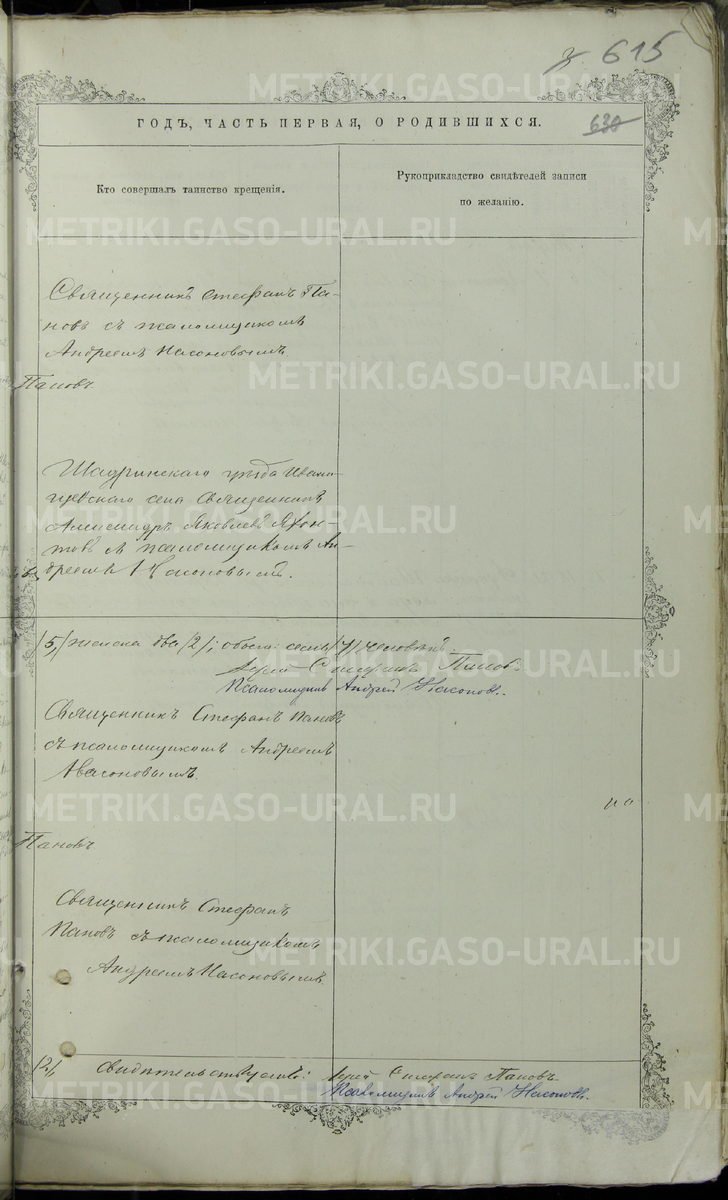 615
630
ГОДЪ, ЧАСТЬ ПЕРВАЯ, О РОДИВШИХСЯ.
Кто совершалъ таинство крещенія.
Рукоприкладство свидѣтелей записи
по желанію.
METRIKI.GASO-URAL.RU
Священникъ Стефанъ Па-
новъ съ псаломщикомъ
Андреемъ Насоновымъ
Пановъ
Шадринскаго уѣзда Ивани-
щевскаго села Священникъ
Александръ Яковлевъ
съ псаломщикомъ Ан-
дреемъ Насоновымъ.
/5,/ женска два /2/; обоего: семь /7/ человѣкъ
Іерей Стефанъ Пановъ.
Псаломщикъ Андрей Насоновъ.
Священникъ Стефанъ Пановъ
съ псаломщикомъ Андреемъ
Насоновымъ.
Пановъ
Священникъ Стефанъ
Пановъ съ псаломщикомъ
Андреемъ Насоновымъ.
/2/, Іерей Стефанъ Пановъ
Псаломщикъ Андрей Насоновъ.